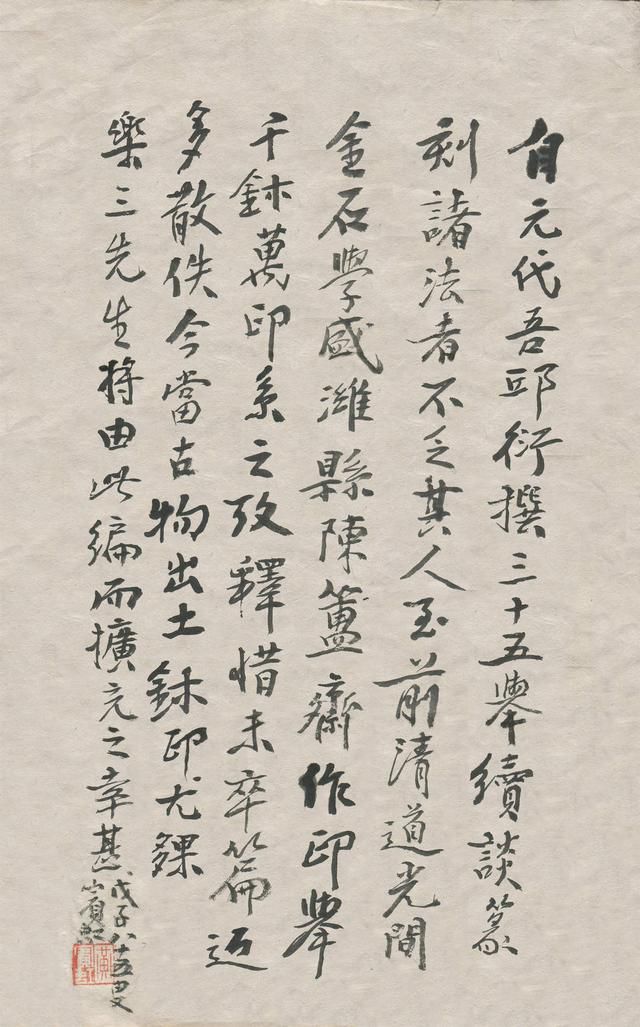 自元代吾邱衍撰三十五舉續談篆
刻諸法者不乏其人至前清道光間
金石學盛濰縣陳簠齋作印舉
千鉥萬印系之攷釋惜未卒篇迺
多散佚今當古物出土鉥印尤夥
樂三先生將由此編而擴充之幸甚
戊子八十五叟
賓虹